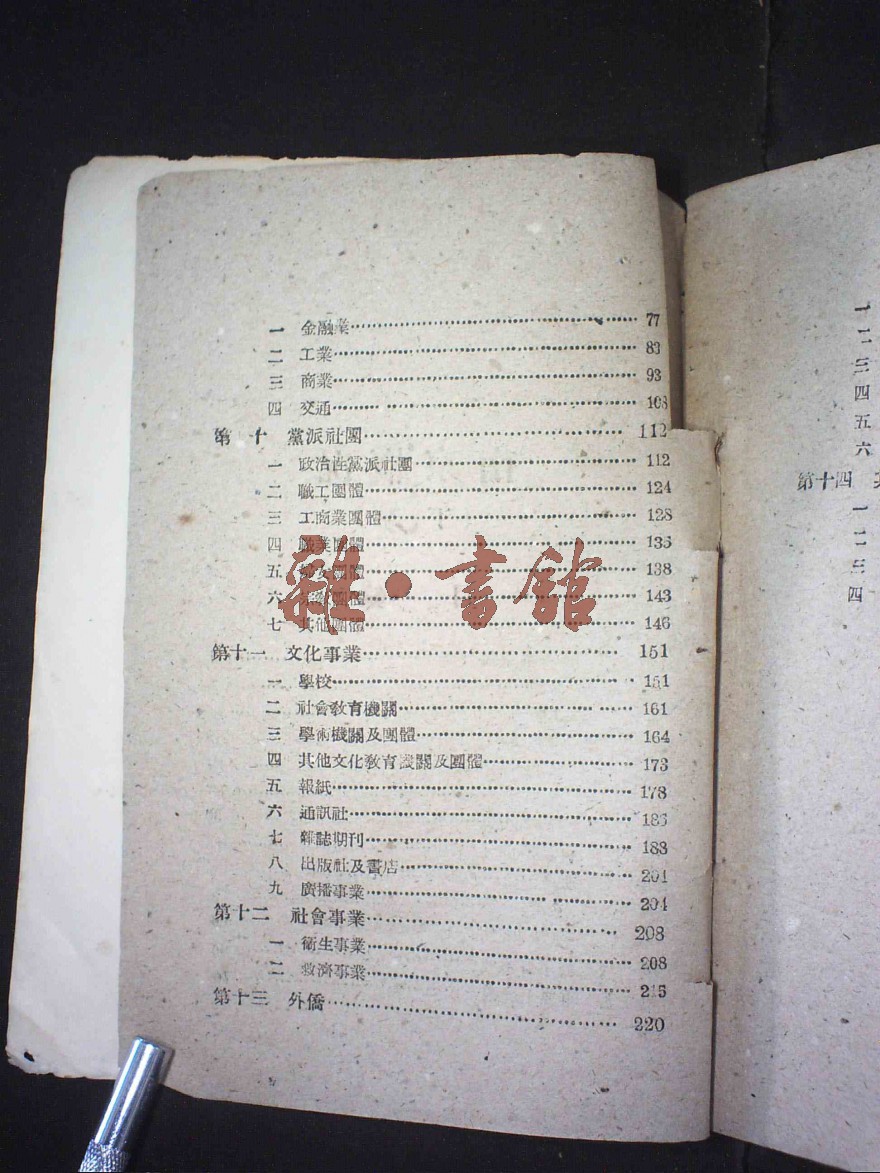 一 金融業 77
二 工業 83
三 商業 93
四 交通 108
第十 黨派社團 112
一 政治性黨派社團 112
二 職工團體 124
三 工商業團體 128
四 職業團體 135
五 婦女團體 138
六 團體 143
七 其他團體 146
第十一 文化事業 151
一 學校 151
二 社會教育機關 161
三 學術機關及團體 164
四 其他文化教育機關及團體 173
五 報紙 178
六 通訊社 185
七 雜誌期刊 188
八 出版社及書店 201
九 廣播事業 204
第十二 社會事業 208
一 衛生事業 208
二 救濟事業 215
第十三 外僑 220
雜·書館
一
二
三
四
五
六
第十四
一
二
三
四